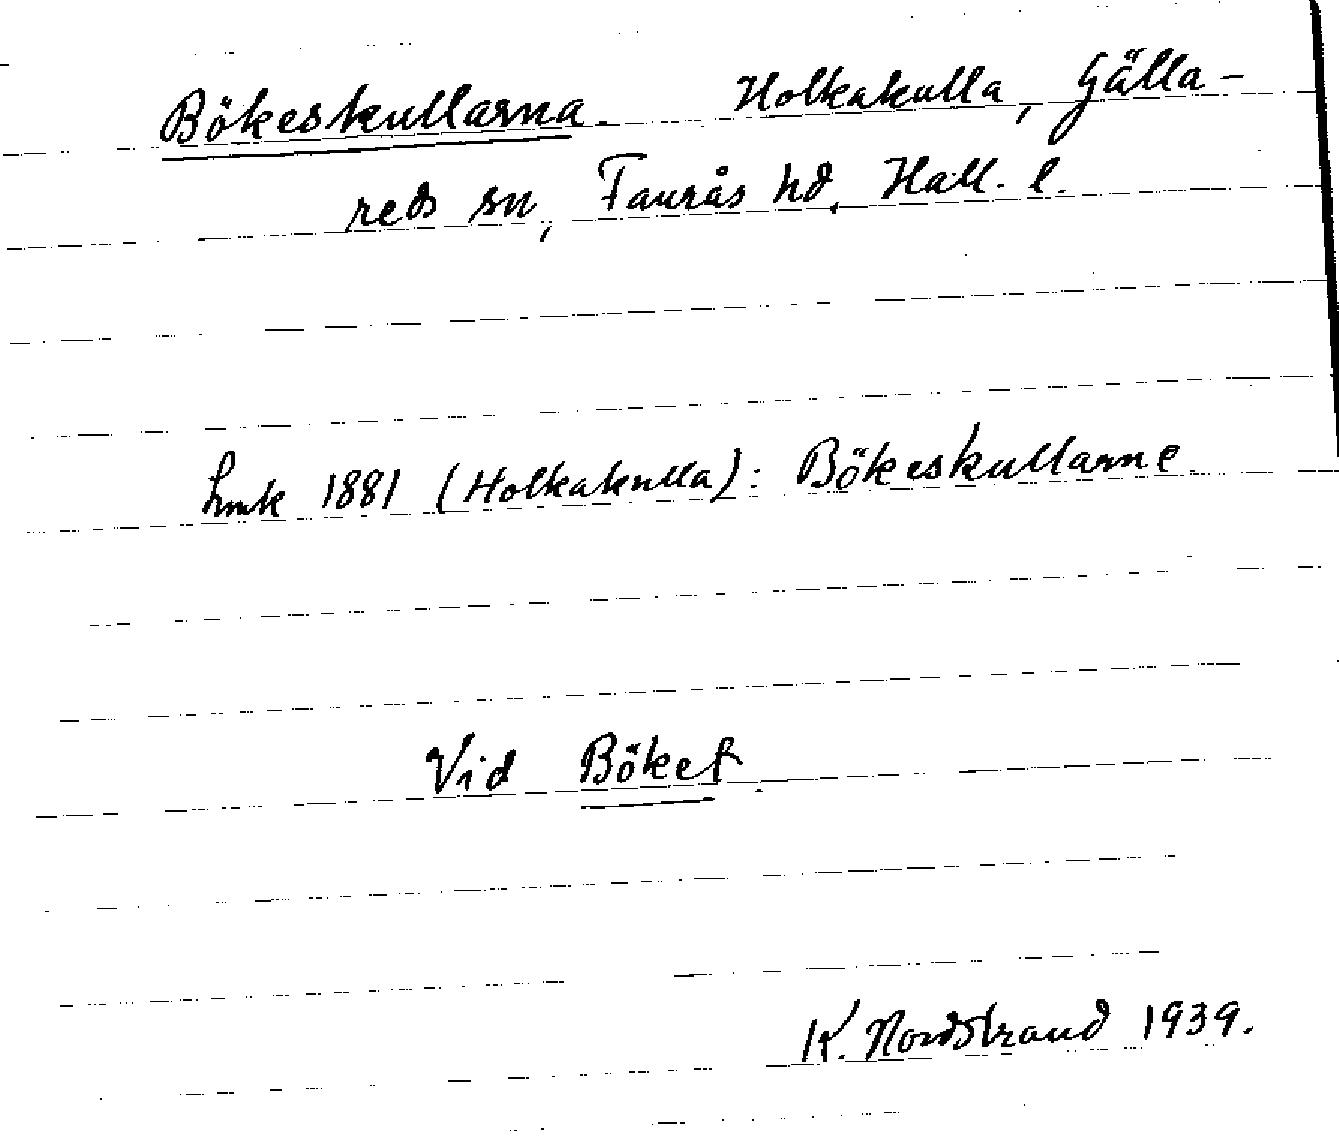 Bökeskullarna. Holkakulla, Gälla-
reds sn, Faurås hd, Hall. l.
Lmk 1881 (Holkakulla): Bökeskullarne
Vid Böket.
K. Nordstrand 1939.